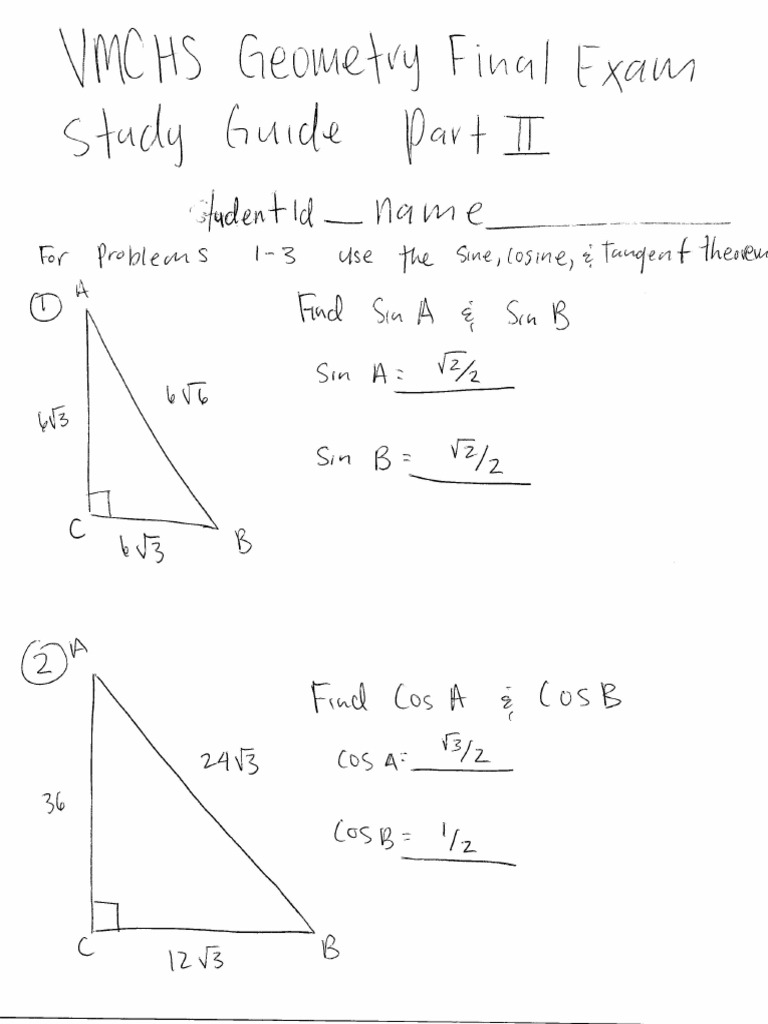 VMCHS Geometry Final Exam
Study Guide Part II
Student Id _ name ___________
For Problems 1-3 use the sine, cosine, & tangent theorem
① A
Find Sin A & Sin B
6√3
6√6
Sin A = √2/2
Sin B = √2/2
C
6√3
B
② A
Find Cos A & Cos B
36
24√3
Cos A = √3/2
Cos B = 1/2
C
12√3
B